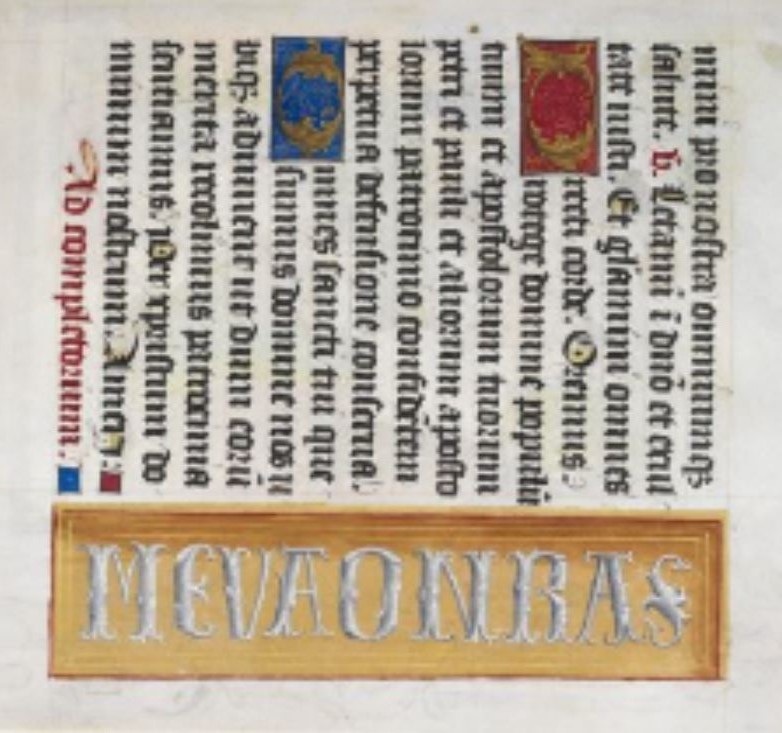 mini pro nostra omniumqꝫ
salute. v. Letamini ī dño et exul
tate iusti. Et gl̃amini omnes
recti corde. Oremus.
Protege domine populū
tuum et apostolorum tuorum
petri et pauli et aliorum aposto
lorum patrocinio confidētem
perpetua defensione conserua.
Omnes sancti tui que
sumus domine nos u
biqꝫ adiuuent ut dum eorū
merita recolimus patrocinia
sentiamus. Per xpristum do
minum nostrum. Amen.
Ad completorium.
MEVAONRAS